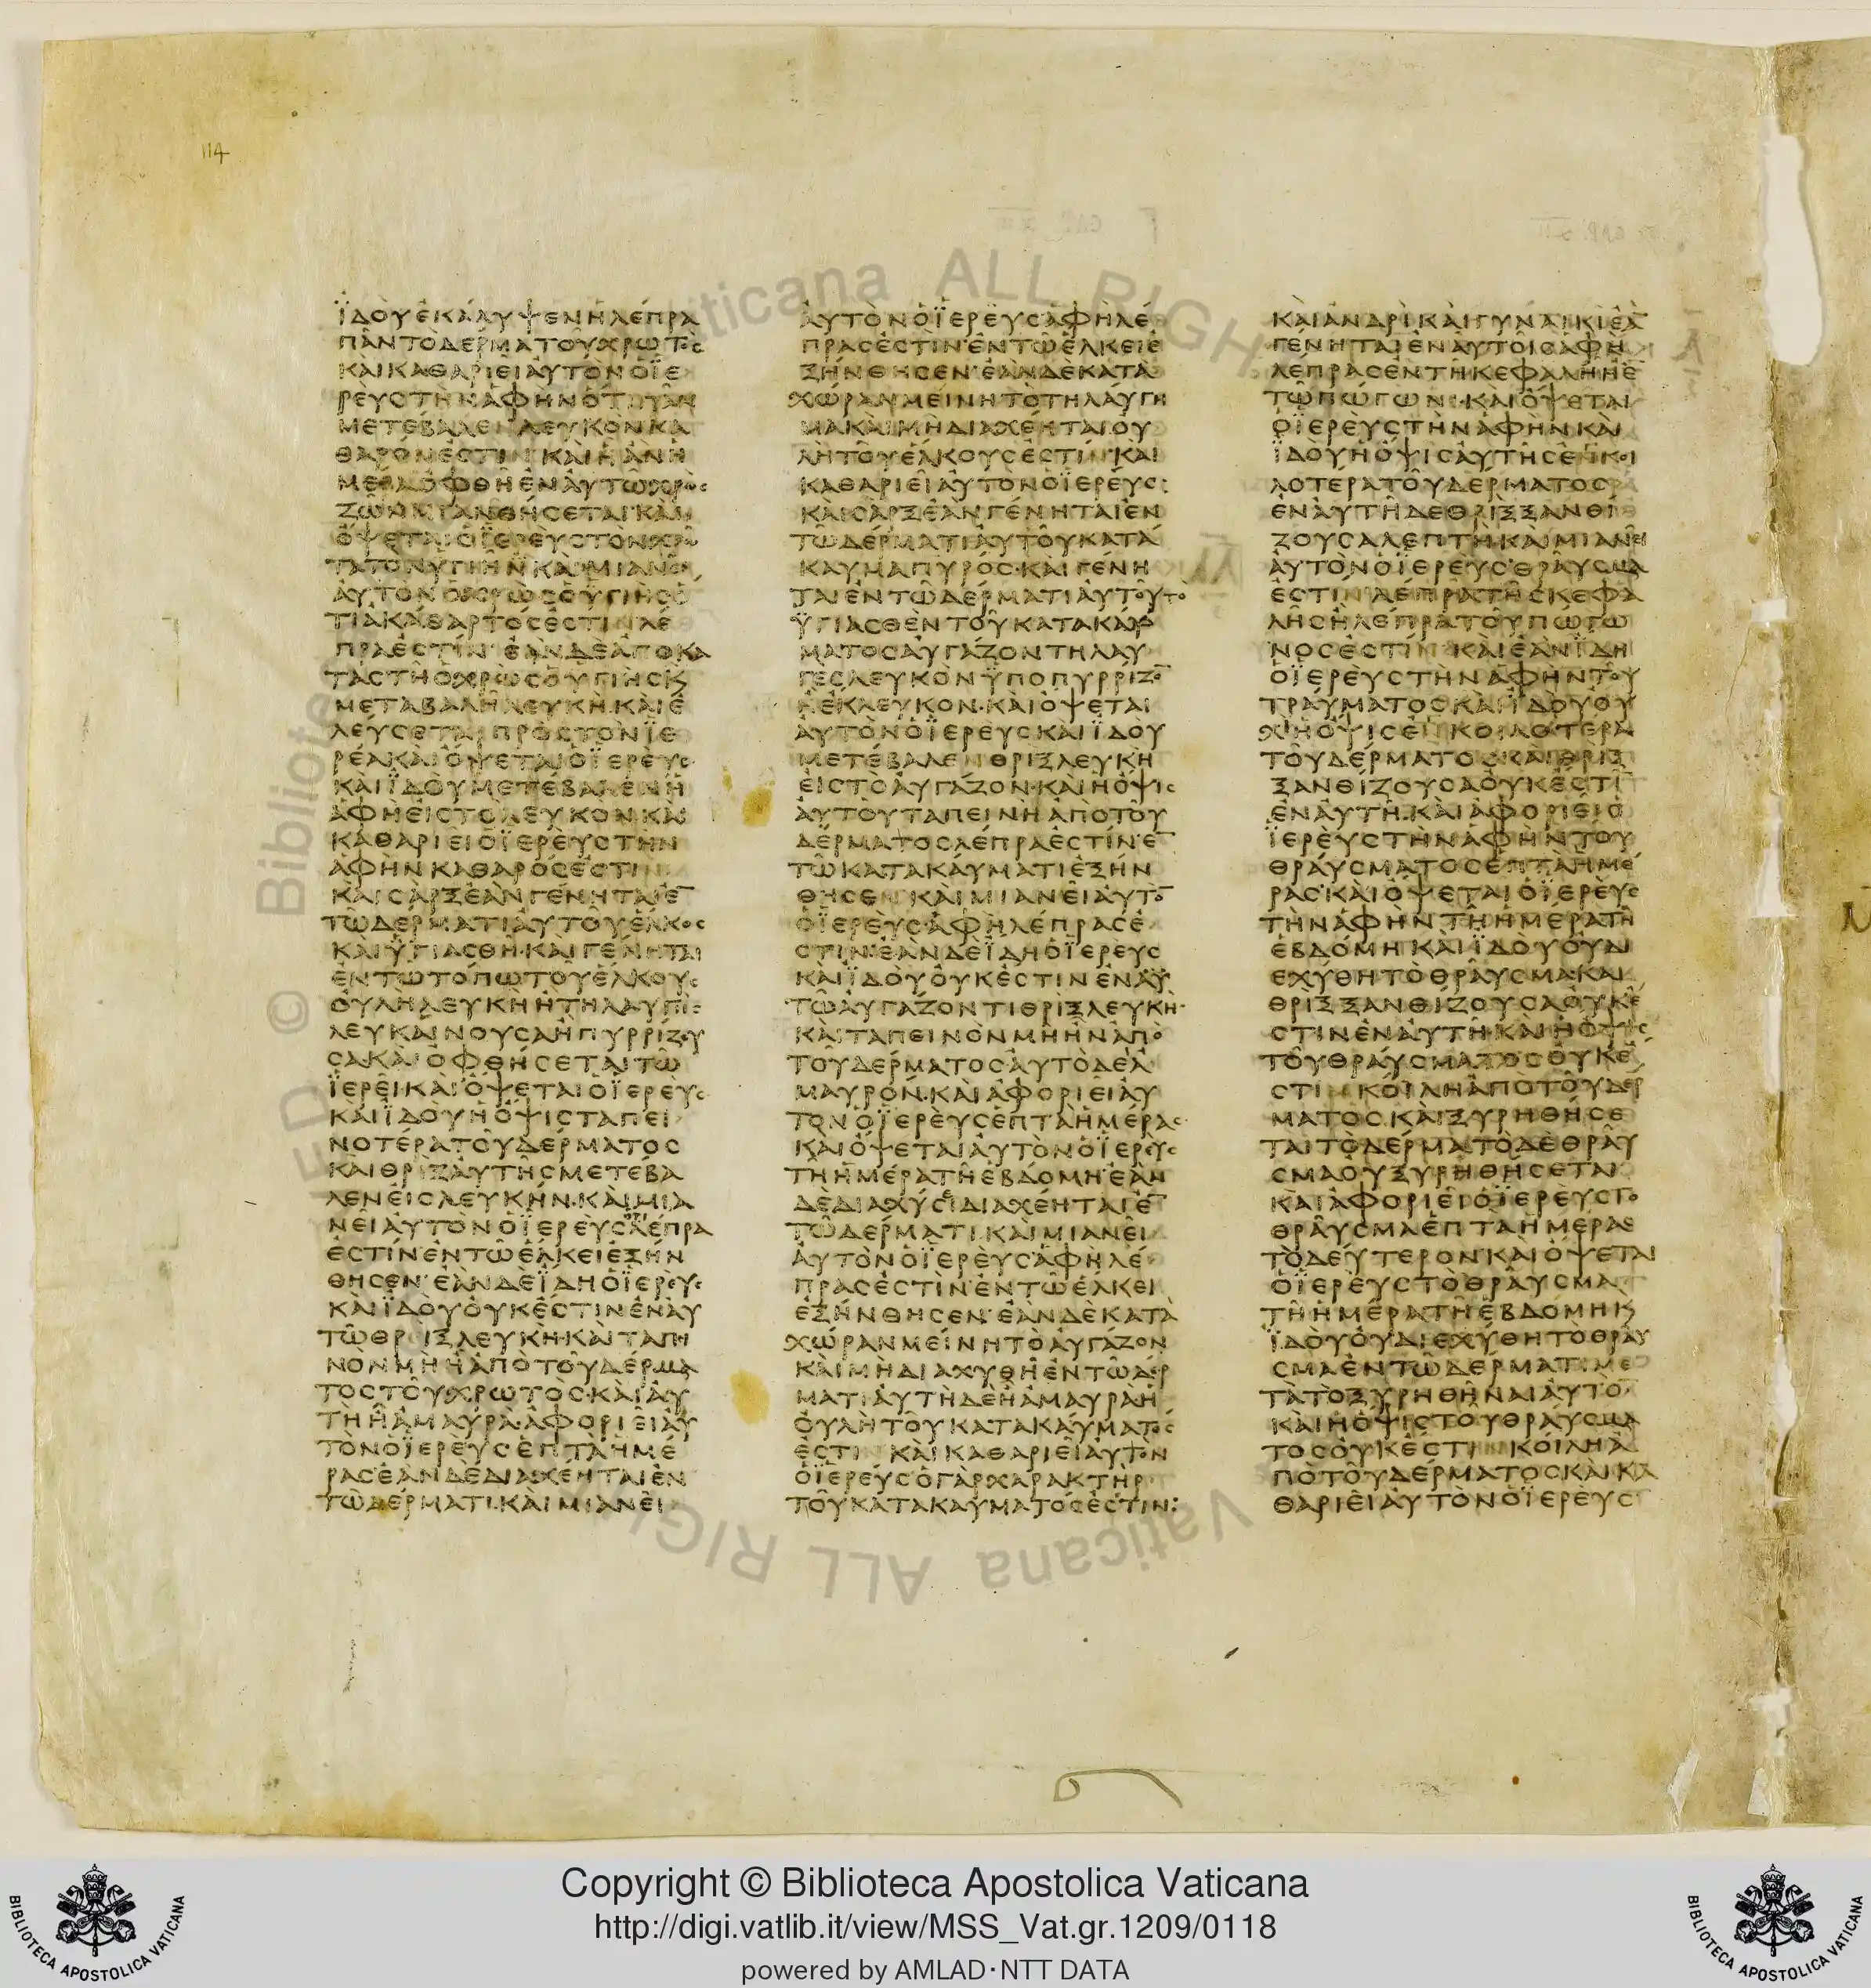 114
ΪΔΟΥΕΚΑΛΥΨΕΝΗΛΕΠΡΑ
ΠΑΝΤΟΔΕΡΜΑΤΟΥΧΡΩΤΟΣ
ΚΑΙΚΑΘΑΡΙΕΙΑΥΤΟΝΟΪΕ
ΡΕΥΣΤΗΝΑΦΗΝΟΤΙΠΑΝ
ΜΕΤΕΒΑΛΕΝΛΕΥΚΟΝΚΑ
ΘΑΡΟΝΕΣΤΙΝΚΑΙΗΑΝΗ
ΜΕΡΑΟΦΘΗΕΝΑΥΤΩΧΡΩΣ
ΖΩΝΜΙΑΝΘΗΣΕΤΑΙΚΑΙ
ΟΨΕΤΑΙΟΪΕΡΕΥΣΤΟΝΧΡΩ
ΤΑΤΟΝΥΓΙΗΚΑΙΜΙΑΝΕΙ
ΑΥΤΟΝΟΧΡΩΣΟΥΓΙΗΣΟ
ΤΙΑΚΑΘΑΡΤΟΣΕΣΤΙΝΛΕ
ΠΡΑΕΣΤΙΝ·ΕΑΝΔΕΑΠΟΚΑ
ΤΑΣΤΗΟΧΡΩΣΟΥΓΙΗΣΚ
ΜΕΤΑΒΑΛΗΛΕΥΚΗ·ΚΑΙΕ
ΛΕΥΣΕΤΑΙΠΡΟΣΤΟΝΪΕ
ΡΕΑΚΑΙΟΨΕΤΑΙΟΪΕΡΕΥΣ
ΚΑΙΪΔΟΥΜΕΤΕΒΑΛΕΝΗ
ΑΦΗΕΙΣΤΟΛΕΥΚΟΝΚΑΙ
ΚΑΘΑΡΙΕΙΟΪΕΡΕΥΣΤΗΝ
ΑΦΗΝΚΑΘΑΡΟΣΕΣΤΙΝ
ΚΑΙΣΑΡΞΕΑΝΓΕΝΗΤΑΙΕ̅
ΤΩΔΕΡΜΑΤΙΑΥΤΟΥΕΛΚΟΣ
ΚΑΙΥΓΙΑΣΘΗ·ΚΑΙΓΕΝΗΤΑΙ
ΕΝΤΩΤΟΠΩΤΟΥΕΛΚΟΥΣ
ΟΥΛΗΛΕΥΚΗΗΤΗΛΑΥΓΗΣ
ΛΕΥΚΑΙΝΟΥΣΑΗΠΥΡΡΙΖΟΥ
ΣΑΚΑΙΟΦΘΗΣΕΤΑΙΤΩ
ΪΕΡΕΙΚΑΙΟΨΕΤΑΙΟΪΕΡΕΥΣ
ΚΑΙΪΔΟΥΗΟΨΙΣΤΑΠΕΙ
ΝΟΤΕΡΑΤΟΥΔΕΡΜΑΤΟΣ
ΚΑΙΘΡΙΞΑΥΤΗΣΜΕΤΕΒΑ
ΛΕΝΕΙΣΛΕΥΚΗΝ·ΚΑΙΜΙΑ
ΝΕΙΑΥΤΟΝΟΪΕΡΕΥΣΛΕΠΡΑ
ΕΣΤΙΝΕΝΤΩΕΛΚΕΙΕΞΗΝ
ΘΗΣΕΝ·ΕΑΝΔΕΪΔΗΟΪΕΡΕΥΣ
ΚΑΙΪΔΟΥΟΥΚΕΣΤΙΝΕΝΑΥ
ΤΩΘΡΙΞΛΕΥΚΗ·ΚΑΙΤΑΠΙ
ΝΟΝΜΗΗΑΠΟΤΟΥΔΕΡΜΑ
ΤΟΣΤΟΥΧΡΩΤΟΣ·ΚΑΙΑΥ
ΤΗΗΑΜΑΥΡΑΑΦΟΡΙΕΙΑΥ
ΤΟΝΟΪΕΡΕΥΣΕΠΤΑΗΜΕ
ΡΑΣΕΑΝΔΕΔΙΑΧΕΗΤΑΙΕΝ
ΤΩΔΕΡΜΑΤΙ·ΚΑΙΜΙΑΝΕΙ
ΑΥΤΟΝΟΪΕΡΕΥΣΑΦΗΛΕ
ΠΡΑΣΕΣΤΙΝ·ΕΝΤΩΕΛΚΕΙΕ
ΞΗΝΘΗΣΕΝ·ΕΑΝΔΕΚΑΤΑ
ΧΩΡΑΝΜΕΙΝΗΤΟΤΗΛΑΥΓΗ
ΜΑΚΑΙΜΗΔΙΑΧΕΗΤΑΙΟΥ
ΛΗΤΟΥΕΛΚΟΥΣΕΣΤΙΝ·ΚΑΙ
ΚΑΘΑΡΙΕΙΑΥΤΟΝΟΪΕΡΕΥΣ:
ΚΑΙΣΑΡΞΕΑΝΓΕΝΗΤΑΙΕΝ
ΤΩΔΕΡΜΑΤΙΑΥΤΟΥΚΑΤΑ
ΚΑΥΜΑΠΥΡΟΣ·ΚΑΙΓΕΝΗ
ΤΑΙΕΝΤΩΔΕΡΜΑΤΙΑΥΤΟΥΤΟ
ΫΓΙΑΣΘΕΝΤΟΥΚΑΤΑΚΑΥ
ΜΑΤΟΣΑΥΓΑΖΟΝΤΗΛΑΥ
ΓΕΣΛΕΥΚΟΝΫΠΟΠΥΡΡΙΖΟ̅
ΗΕΚΛΕΥΚΟΝ·ΚΑΙΟΨΕΤΑΙ
ΑΥΤΟΝΟΪΕΡΕΥΣΚΑΙΪΔΟΥ
ΜΕΤΕΒΑΛΕΝΘΡΙΞΛΕΥΚΗ
ΕΙΣΤΟΑΥΓΑΖΟΝ·ΚΑΙΗΟΨΙΣ
ΑΥΤΟΥΤΑΠΕΙΝΗΑΠΟΤΟΥ
ΔΕΡΜΑΤΟΣΛΕΠΡΑΕΣΤΙΝ·Ε̅
ΤΩΚΑΤΑΚΑΥΜΑΤΙΕΞΗΝ
ΘΗΣΕΝΚΑΙΜΙΑΝΕΙΑΥΤΟ̅
ΟΪΕΡΕΥΣ·ΑΦΗΛΕΠΡΑΣΕ
ΣΤΙΝ·ΕΑΝΔΕΪΔΗΟΪΕΡΕΥΣ
ΚΑΙΪΔΟΥΟΥΚΕΣΤΙΝΕΝΑΥ
ΤΩΑΥΓΑΖΟΝΤΙΘΡΙΞΛΕΥΚΗ·
ΚΑΙΤΑΠΕΙΝΟΝΜΗΗΝΑΠΟ
ΤΟΥΔΕΡΜΑΤΟΣΑΥΤΟΔΕΑ
ΜΑΥΡΟΝ·ΚΑΙΑΦΟΡΙΕΙΑΥ
ΤΟΝΟΪΕΡΕΥΣΕΠΤΑΗΜΕΡΑΣ
ΚΑΙΟΨΕΤΑΙΑΥΤΟΝΟΪΕΡΕΥΣ
ΤΗΗΜΕΡΑΤΗΕΒΔΟΜΗ·ΕΑΝ
ΔΕΔΙΑΧΥΣΕΙΔΙΑΧΕΗΤΑΙΕ̅
ΤΩΔΕΡΜΑΤΙ·ΚΑΙΜΙΑΝΕΙ
ΑΥΤΟΝΟΪΕΡΕΥΣ·ΑΦΗΛΕ
ΠΡΑΣΕΣΤΙΝ·ΕΝΤΩΕΛΚΕΙ
ΕΞΗΝΘΗΣΕΝ·ΕΑΝΔΕΚΑΤΑ
ΧΩΡΑΝΜΕΙΝΗΤΟΑΥΓΑΖΟΝ
ΚΑΙΜΗΔΙΑΧΥΘΗΕΝΤΩΔΕΡ
ΜΑΤΙΑΥΤΗΔΕΗΑΜΑΥΡΑΗ
ΟΥΛΗΤΟΥΚΑΤΑΚΑΥΜΑΤΟΣ
ΕΣΤΙΝΚΑΙΚΑΘΑΡΙΕΙΑΥΤΟΝ
ΟΪΕΡΕΥΣΟΓΑΡΧΑΡΑΚΤΗΡ
ΤΟΥΚΑΤΑΚΑΥΜΑΤΟΣΕΣΤΙΝ:
ΚΑΙΑΝΔΡΙΚΑΙΓΥΝΑΙΚΙΕΑ̅
ΓΕΝΗΤΑΙΕΝΑΥΤΟΙΣΑΦΗ
ΛΕΠΡΑΣΕΝΤΗΚΕΦΑΛΗΗΕ̅
ΤΩΠΩΓΩΝΙ·ΚΑΙΟΨΕΤΑΙ
ΟΪΕΡΕΥΣΤΗΝΑΦΗΝΚΑΙ
ΪΔΟΥΗΟΨΙΣΑΥΤΗΣΕΝΚΟΙ
ΛΟΤΕΡΑΤΟΥΔΕΡΜΑΤΟΣ
ΕΝΑΥΤΗΔΕΘΡΙΞΞΑΝΘΙ
ΖΟΥΣΑΛΕΠΤΗ·ΚΑΙΜΙΑΝΕΙ
ΑΥΤΟΝΟΪΕΡΕΥΣ·ΘΡΑΥΣΜΑ
ΕΣΤΙΝΛΕΠΡΑΤΗΣΚΕΦΑ
ΛΗΣΗΛΕΠΡΑΤΟΥΠΩΓΩ
ΝΟΣΕΣΤΙΝΚΑΙΕΑΝΪΔΗ
ΟΪΕΡΕΥΣΤΗΝΑΦΗΝΤΟΥ
ΤΡΑΥΜΑΤΟΣΚΑΙΪΔΟΥΟΥ
ΧΗΟΨΙΣΕΝΚΟΙΛΟΤΕΡΑ
ΤΟΥΔΕΡΜΑΤΟΣΚΑΙΘΡΙΞ
ΞΑΝΘΙΖΟΥΣΑΟΥΚΕΣΤΙ̅
ΕΝΑΥΤΗ·ΚΑΙΑΦΟΡΙΕΙΟ
ΪΕΡΕΥΣΤΗΝΑΦΗΝΤΟΥ
ΘΡΑΥΣΜΑΤΟΣΕΠΤΑΗΜΕ
ΡΑΣ·ΚΑΙΟΨΕΤΑΙΟΪΕΡΕΥΣ
ΤΗΝΑΦΗΝΤΗΗΜΕΡΑΤΗ
ΕΒΔΟΜΗ·ΚΑΙΪΔΟΥΟΥΔΙ
ΕΧΥΘΗΤΟΘΡΑΥΣΜΑΚΑΙ
ΘΡΙΞΞΑΝΘΙΖΟΥΣΑΟΥΚΕ
ΣΤΙΝΕΝΑΥΤΗ·ΚΑΙΗΟΨΙΣ
ΤΟΥΘΡΑΥΣΜΑΤΟΣΟΥΚΕ
ΣΤΙΝΚΟΙΛΗΑΠΟΤΟΥΔΕΡ
ΜΑΤΟΣ·ΚΑΙΞΥΡΗΘΗΣΕ
ΤΑΙΤΟΔΕΡΜΑΤΟΔΕΘΡΑΥ
ΣΜΑΟΥΞΥΡΗΘΗΣΕΤΑΙ
ΚΑΙΑΦΟΡΙΕΙΟΪΕΡΕΥΣΤΟ
ΘΡΑΥΣΜΑΕΠΤΑΗΜΕΡΑΣ
ΤΟΔΕΥΤΕΡΟΝ·ΚΑΙΟΨΕΤΑΙ
ΟΪΕΡΕΥΣΤΟΘΡΑΥΣΜΑ
ΤΗΗΜΕΡΑΤΗΕΒΔΟΜΗΚ
ΪΔΟΥΟΥΔΙΕΧΥΘΗΤΟΘΡΑΥ
ΣΜΑΕΝΤΩΔΕΡΜΑΤΙΜΕ
ΤΑΤΟΞΥΡΗΘΗΝΑΙΑΥΤΟ
ΚΑΙΗΟΨΙΣΤΟΥΘΡΑΥΣΜΑ
ΤΟΣΟΥΚΕΣΤΙΝΚΟΙΛΗΑ
ΠΟΤΟΥΔΕΡΜΑΤΟΣΚΑΙΚΑ
ΘΑΡΙΕΙΑΥΤΟΝΟΪΕΡΕΥΣ
Copyright © Biblioteca Apostolica Vaticana
http://digi.vatlib.it/view/MSS_Vat.gr.1209/0118
powered by AMLAD·NTT DATA
BIBLIOTECA APOSTOLICA VATICANA
BIBLIOTECA APOSTOLICA VATICANA